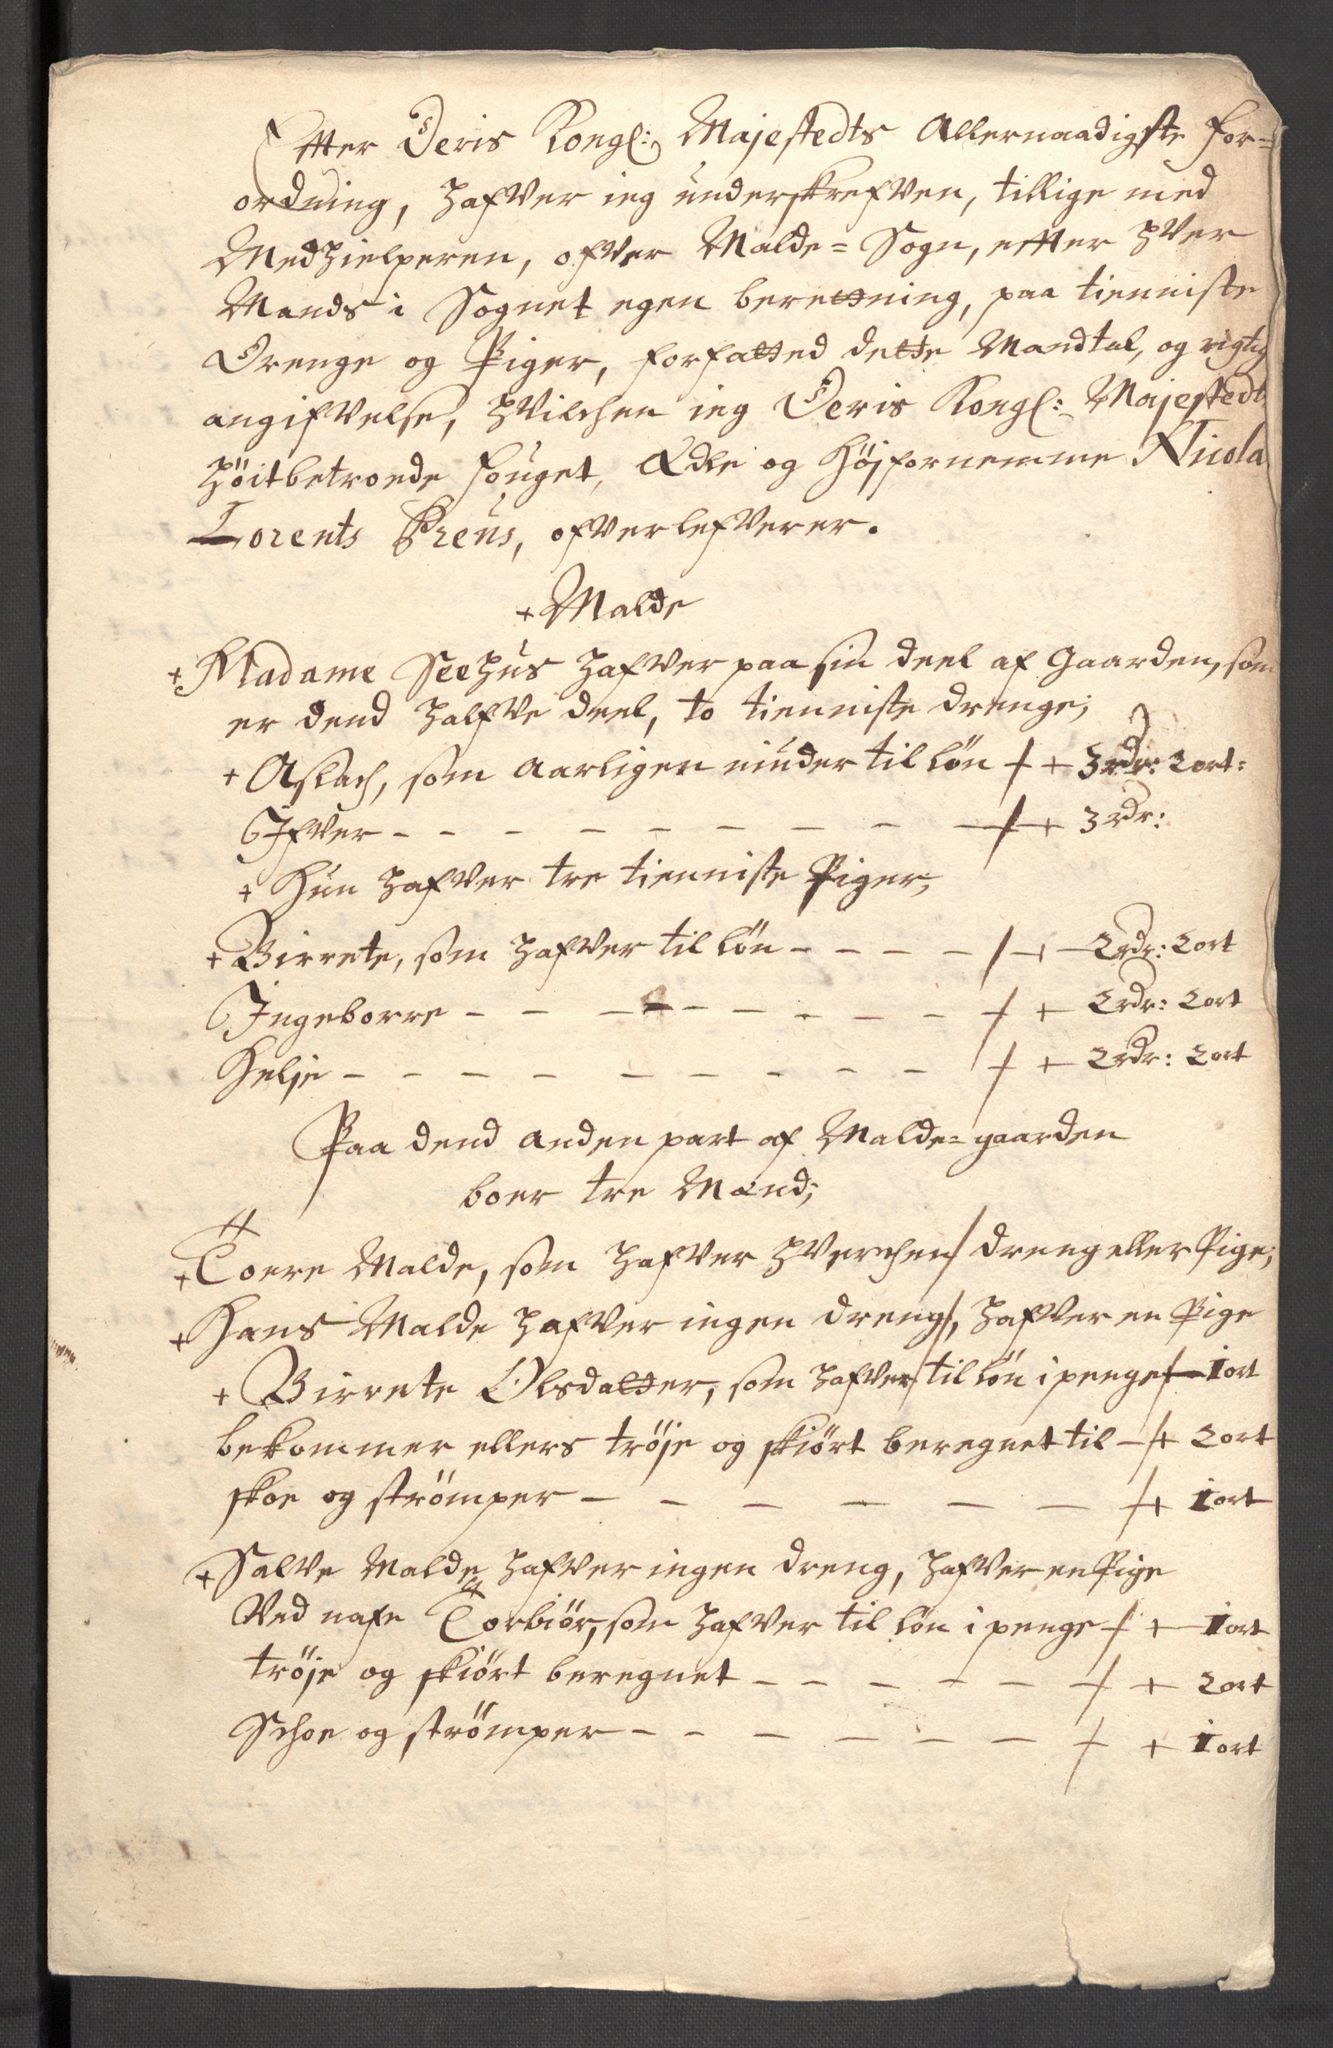 Etter Deris Kongl: Majestedts Allernaadigste for=
ordning, hafver ieg underskrefven, tillige med
Medhielperen, ofver Malde=Sogn, efter hver
Mands i Sognet egen beretning, paa tienniste
Drenge og Piger, forfatted dette Mandtal, og rigtig
angifvelse, hvilchen ieg Deris Kongl: Majestedts
höitbetroede fouget, Ædle og Höjfornemme Nicola
Lorents Preus, ofverlefverer.
+ Malde
+ Madame Seehus hafver paa sin deel af Gaarden, som
er dend halfve deel, to tienniste drenge;
+ Aslach, som aarligen niuder til løn + + 3 rdr: 2 ort:
Ifver - - - - - - - - + 3 rdr:
+ Hun hafver tre tienniste Piger,
+ Birrete, som hafver til løn - - - - / + 2 rdr: 2 ort
Ingeborre - - - - - - - - + + 2 rdr: 2 ort
Helje - - - - - - - - - + + 2 rdr: 2 ort
Paa dend anden part af Malde=gaarden
boer tre Mænd;
+ Toere Malde, som hafver hverchen dreng eller Pige;
+ Hans Malde hafver ingen dreng, hafver en Pige
+ Birrete Olsdatter, som hafver til løn i penge + 1 ort
bekommer ellers trøje og skiørt beregnet til - + 2 ort
skoe og strømper - - - - - - + 1 ort
+ Salve Malde hafver ingen dreng, hafver en Pige
Ved nafn Torbiør, som hafver til løn i penge + + 1 ort
trøje og skiørt beregnet - - - - - + + 2 ort
Schoe og strømper - - - - - - + + 1 ort